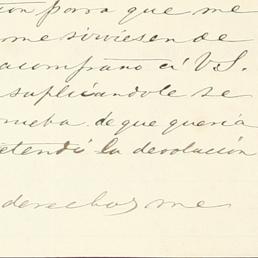 cion para que me
me sirviesen de
acompaño a V.S.
suplicandole se
prueba de que queria
etendi la devolucion
derechos me